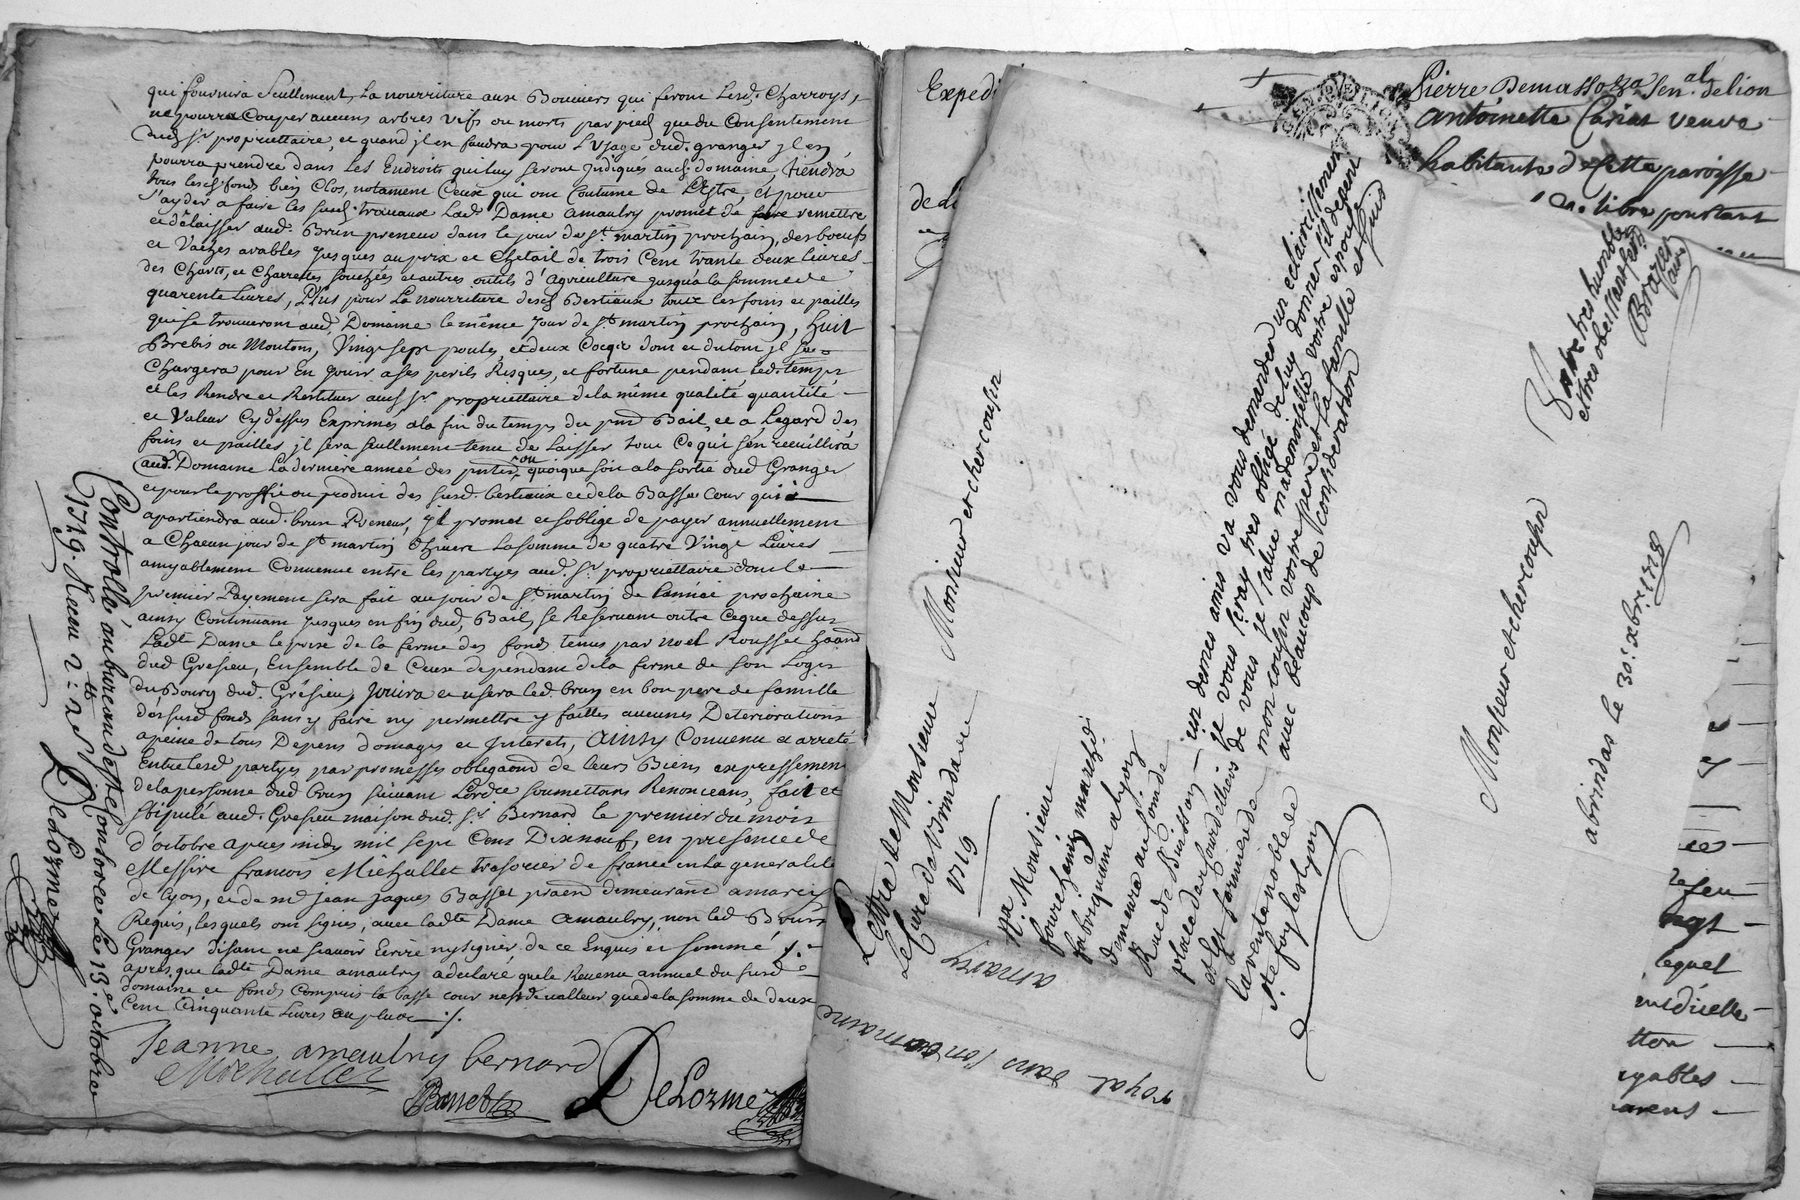 qui fournira Seullement La nourriture aux Bouviers qui feront Lesd. Charroys,
ne pourra Couper aucuns arbres vifs ou morts par pied que du Consentement
dud. Sr. proprietaire, et quand jl en faudra pour L'Usage dud. granger jl en
pourra prendre dans Les Endroits qui luy seront Jndiqués aud. domaine, tiendra
tous lesd. fonds bien Clos, notament Ceux qui ont Coutume de L'Estre, et pour
S'ayder a faire les susd. travaux Lad. Dame amaulry promet de remettre
et délaisser aud. Brun preneur dans le jour de St. martin prochain, des boeufs
et Vaches arables jusques au prix et Chetail de trois Cent trante deux livres
des Charts, et Charrettes et autres outils d'Agriculture jusqu'a la somme de
quarente Livres, Plus pour La nourriture desd. Bestiaux tous les foins et pailles
que se trouveront aud. Domaine le même Jour de St. martin prochain, huit
Brebis ou Moutons, Vingt sept poules, et deux Cocqs dont et du tout jl se
Chargera pour En jouir a ses perils Risques, et fortune pendant led. temps
et les Rendre et Restituer aud. Sr. proprietaire de la même qualité quantité
et Valeur Cy dessus Exprimés a la fin du temps du pnt Bail, et a Legard des
foins et pailles jl sera seullement tenu de Laisser tout Ce qui s'en recuillira
aud. Domaine La derniere année des ou quoique soit a la sortie dud. Granger
et pour le proffit ou produit des susd. bestiaux et de la Basse Cour qui
apartiendra aud. brun Preneur, jl promet et s'oblige de payer annuellement
a Chacun jour de St. martin d'hivert La somme de quatre Vingt Livres
amyablement Convenue entre les partyes aud. Sr. proprietaire dont le
premier Payement sera fait au jour de St. martin de L'année prochaine
ainsy Continuant jusques en fin dud. Bail, se Reservant outre Ce que dessus
Ladte Dame le prix de la ferme des fonds tenus par noel Rousset
dud Gresieu, Ensemble de Ceux dependant de la ferme de son Logis
du Bourg dud. Grésieu, Jouira et usera led. brun en bon pere de famille
des susd. fonds sans y faire ny permettre y faittes aucunes Deteriorations
a peine de tous Depens domages et Jnterets, Ainsy Convenu et arreté
Entre lesd. partyes par promesses de leurs Biens expressement
de la personne dud. brun suivant Lord. soumettans Renonceans, fait et
Stipulé aud. Gresieu maison dud. Sr. Bernard le premier du mois
d'octobre apres midy mil sept Cent Dixneuf, en presence de
Messire francois Michallet tresorier de france en La generalité
de Lyon, et de Me jean jaques Basset demeurant a marcy
Requis, lesquels ont signés, avec Ladte Dame Amaulry, non led. Brun
Granger disant ne scavoir Ecrire ny signer, de ce Enquis et sommé ./.
apres que Ladte Dame amaulry a declaré que le Revenu annuel du susd.
domaine et fonds Compris la basse cour n'est de valleur que de la somme de deux
Cent Cinquante Livres au plus ./.
Jeanne amaulry bernard
Michallet
Basset
DeLorme
Controllé au bureau de Ste Consorce Le 13e. octobre
1719. Receu
DeLorme
Expedi
de
Pierre Demassozza Senal. de lion
Antoinette Carias veuve
habitante d cette paroisse
libre pourtant
Lettre de Monsieur
Le Curé de Vrindas
1719
Monsieur et cher cousin
Mr. Monsieur
a lyon
demeure au fonds
Rue de Buisson
place des Courdelliers
La vente noble de
Ste foy les Lyon
un de mes amis va vous demander un eclaircissement
je vous seray tres obligé de luy donner s'il depent
de vous je salue mademoiselle vostre espouse
mon cousin vostre pere et sa famille et suis
avec beaucoup de consideration
Monsieur et cher cousin
Votre tres humble
et tres obeissant ser
a brindas le 30e xbre 1718
a marcy
royal dans l'on domaine
lequel